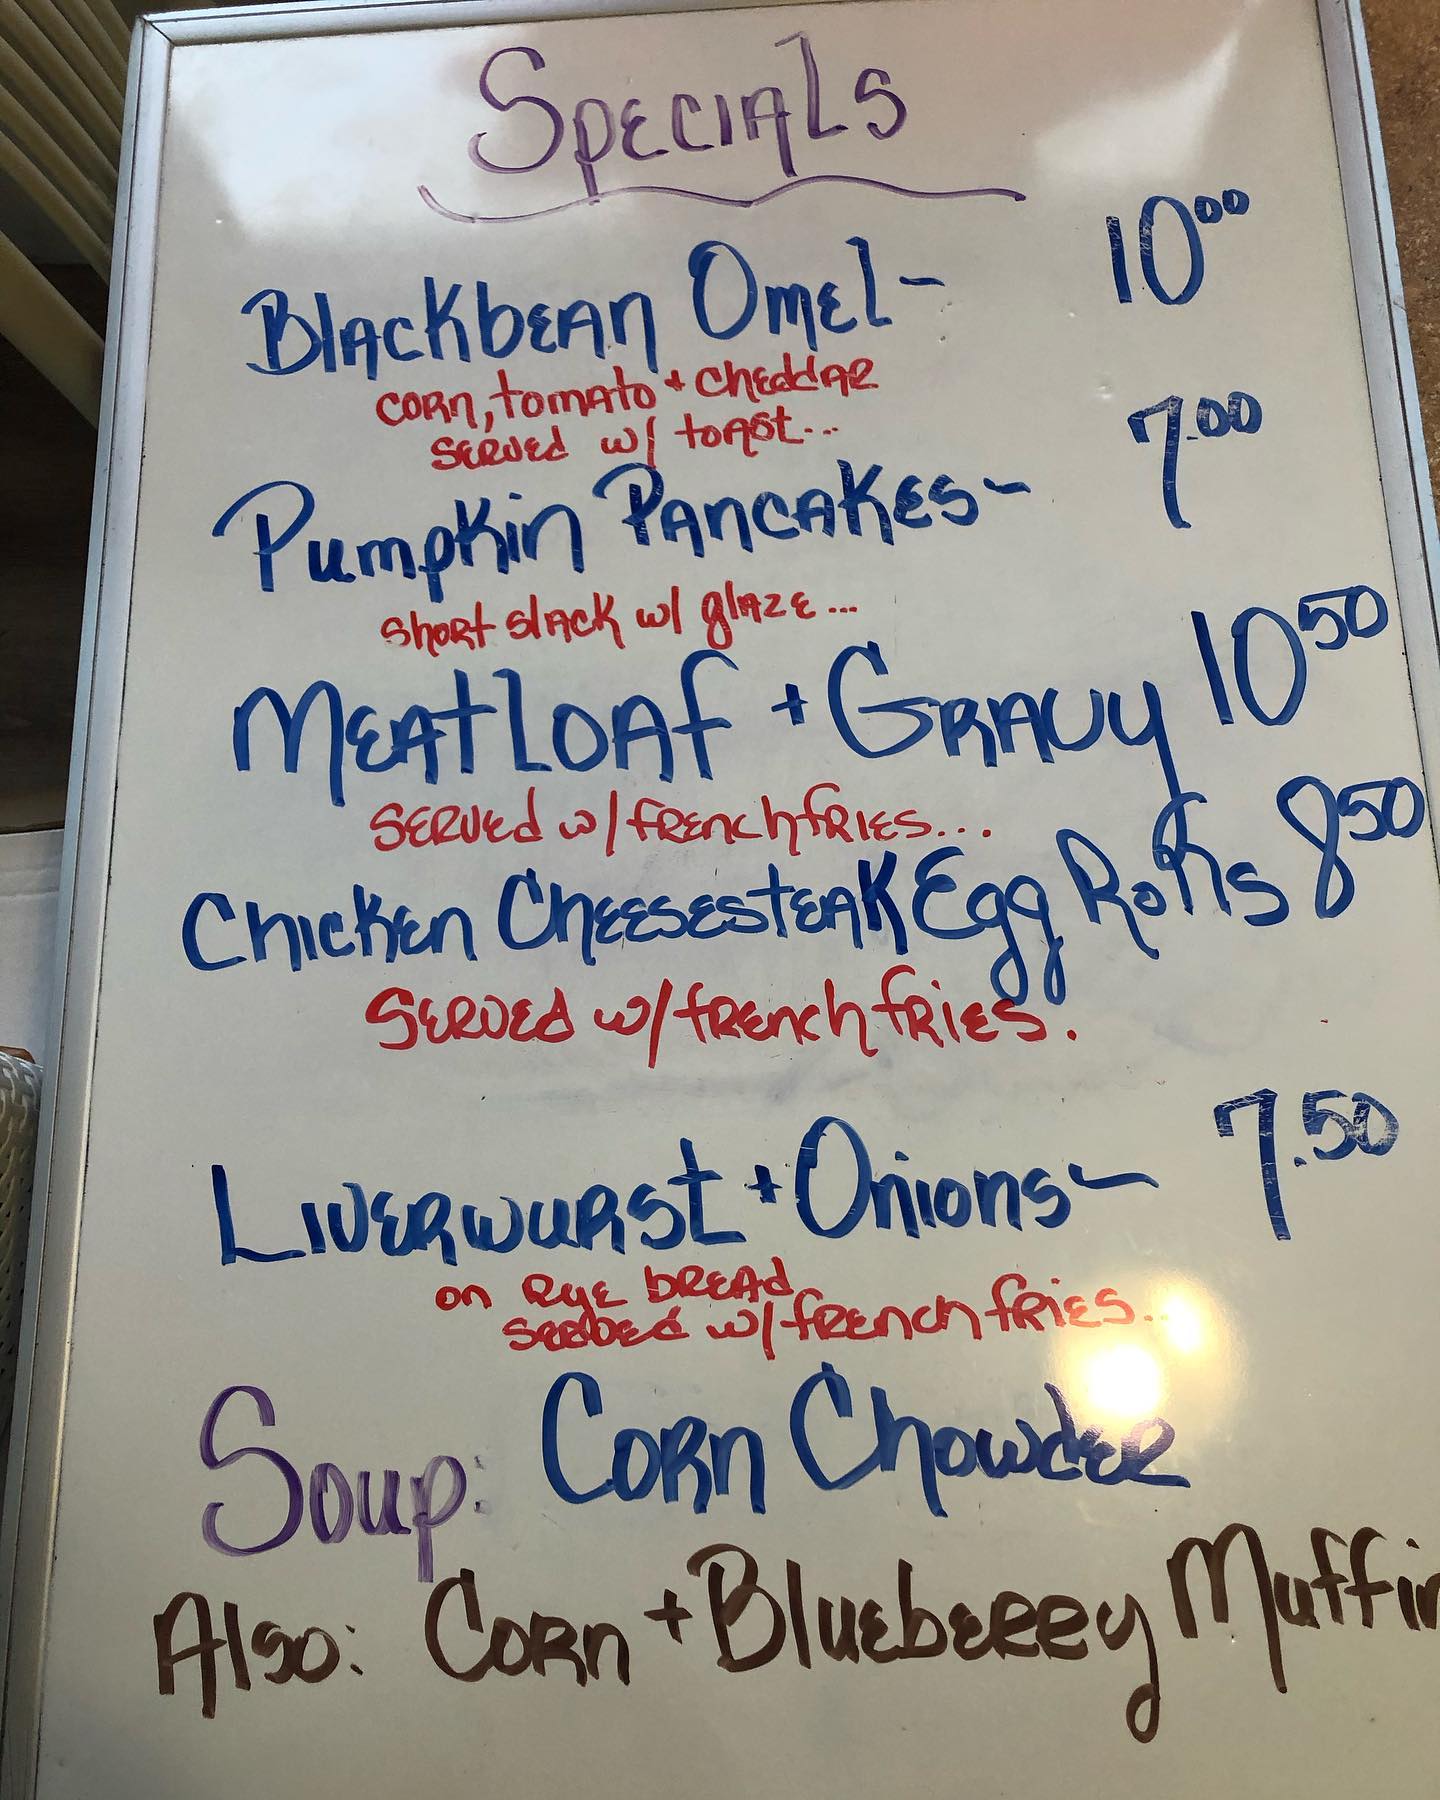 Specials
Blackbean Omel~ 10.00
corn, tomato + cheddar
served w/ toast...
Pumpkin Pancakes~ 7.00
short stack w/ glaze...
Meatloaf + Gravy 10.50
served w/ french fries...
Chicken Cheesesteak Egg Rolls 8.50
Served w/ french fries.
Liverwurst + Onions~ 7.50
on Rye bread
served w/ french fries...
Soup: Corn Chowder
Also: Corn + Blueberry Muffin